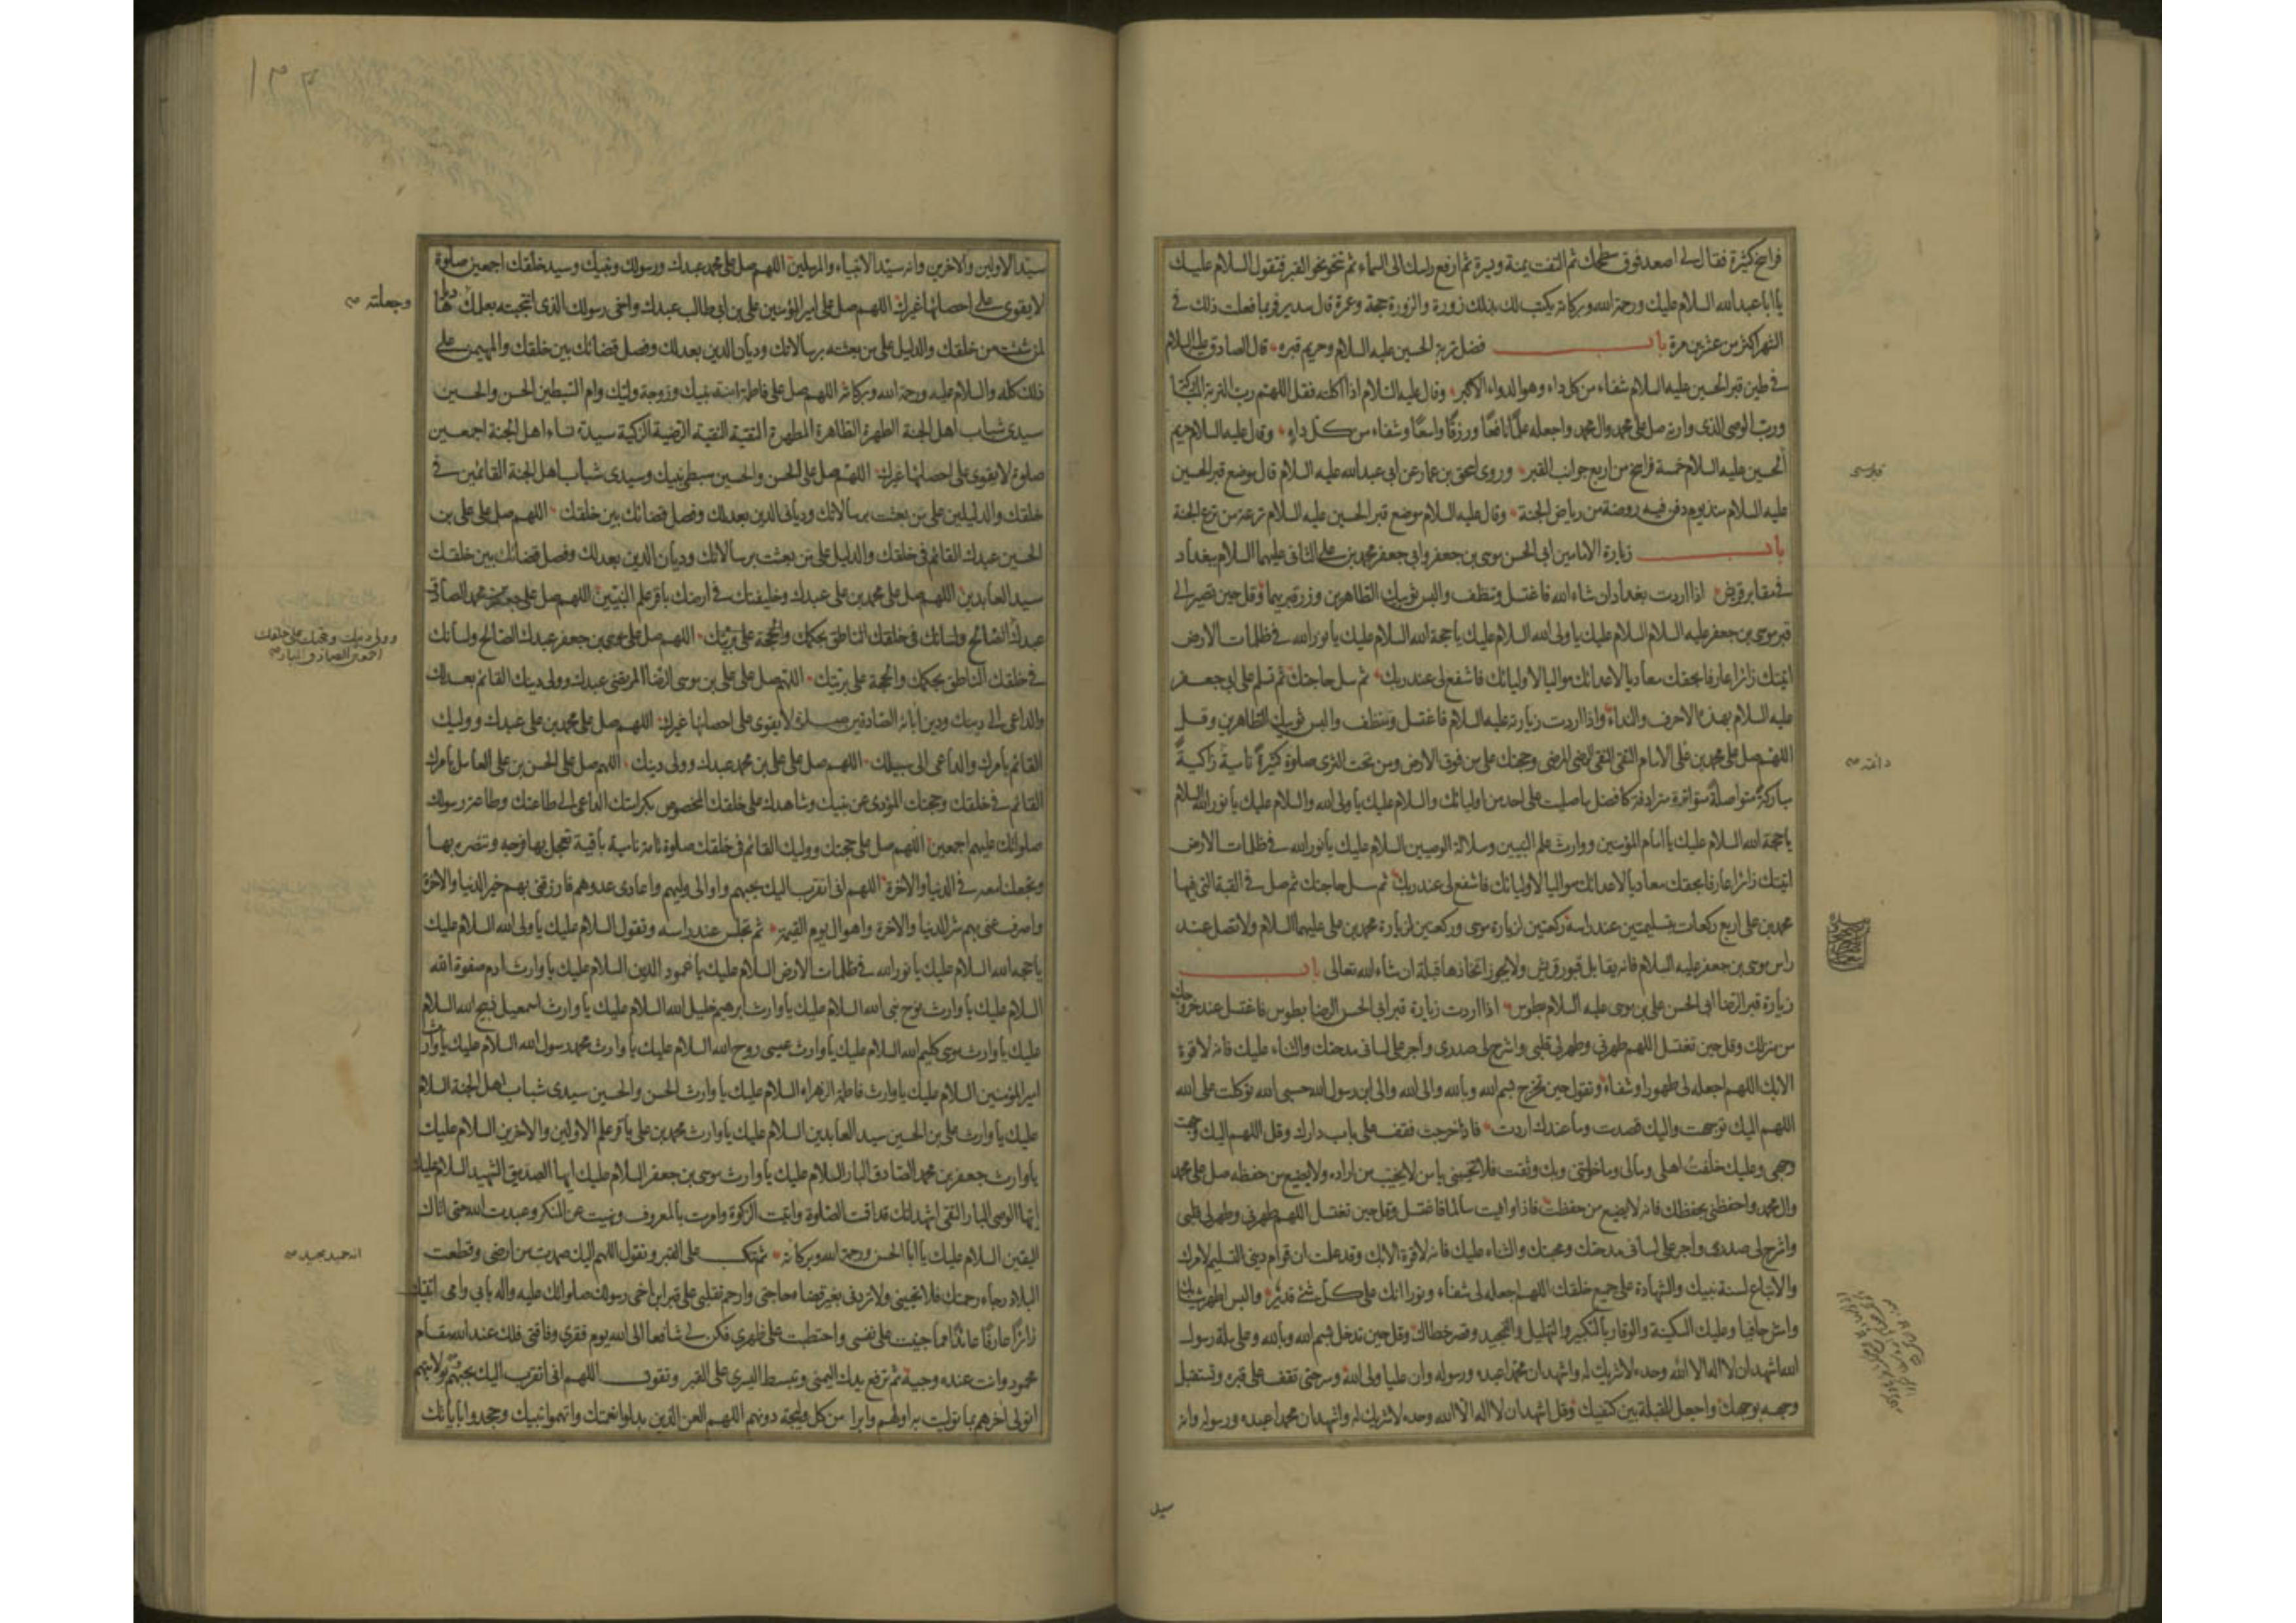 فراسخ كثيرة فقال لى اصعد فوق سطحك ثم التفت يمنة ويسرة ثم ارفع راسك الى السماء ثم تنحو نحو القبر فتقول السلام عليك
يا ابا عبد الله السلام عليك ورحمة الله وبركاته يكتب لك بذلك زورة والزورة حجة وعمرة قال سدير فربما فعلت ذلك فى
الشهر اكثر من عشرين مرة باب فضل تربة الحسين عليه السلام وحريم قبره قال الصادق عليه السلام
فى طين قبر الحسين عليه السلام شفاء من كل داء وهو الدواء الاكبر وقال عليه السلام اذا اكلته فقل اللهم رب التربة المباركة
ورب الوصى الذى وارته صل على محمد وال محمد واجعله علمًا نافعًا ورزقًا واسعًا وشفاء من كل داء وقال عليه السلام حريم
الحسين عليه السلام خمسة فراسخ من اربع جوانب القبر وروى اسحق بن عمار عن ابى عبد الله عليه السلام قال موضع قبر الحسين
عليه السلام منذ يوم دفن فيه روضة من رياض الجنة وقال عليه السلام موضع قبر الحسين عليه السلام ترعة من ترع الجنة
باب زيارة الامامين ابى الحسن موسى بن جعفر وابى جعفر محمد بن على الثانى عليهما السلام ببغداد
فى مقابر قريش اذا اردت بغداد ان شاء الله فاغتسل وتنظف والبس ثوبيك الطاهرين وزر قبريهما وقل حين تصير الى
قبر موسى بن جعفر عليه السلام السلام عليك يا ولى الله السلام عليك يا حجة الله السلام عليك يا نور الله فى ظلمات الارض
اتيتك زائرا عارفا بحقك معاديا لاعدائك مواليا لاوليائك فاشفع لى عند ربك ثم سل حاجتك ثم تسلم على ابى جعفر
عليه السلام بهذه الاحرف والنداء واذا اردت زيارته عليه السلام فاغتسل وتنظف والبس ثوبيك الطاهرين وقل
اللهم صل على محمد بن على الامام التقى النقى الرضى المرضى وحجتك على من فوق الارض ومن تحت الثرى صلوة كثيرة نامية زاكية
مباركة متواصلة متواترة مترادفة كافضل ما صليت على احد من اوليائك والسلام عليك يا ولى الله والسلام عليك يا نور الله السلام
يا حجة الله السلام عليك يا امام المؤمنين ووارث علم النبيين وسلالة الوصيين السلام عليك يا نور الله فى ظلمات الارض
اتيتك زائرا عارفا بحقك معاديا لاعدائك مواليا لاوليائك فاشفع لى عند ربك ثم سل حاجتك ثم صل فى القبة التى فيها
محمد بن على اربع ركعات بتسليمتين عند راسه ركعتين لزيارة موسى وركعتين لزيارة محمد بن على عليهما السلام ولا تصل عند
راس موسى بن جعفر عليه السلام فانه يقابل قبور قريش ولا يجوز اتخاذها قبلة ان شاء الله تعالى باب
زيارة قبر الرضا ابى الحسن على بن موسى عليه السلام بطوس اذا اردت زيارة قبر ابى الحسن الرضا بطوس فاغتسل عند خروجك
من منزلك وقل حين تغتسل اللهم طهرنى وطهر لى قلبى واشرح لى صدرى واجر على لسانى مدحتك والثناء عليك فانه لا قوة
الا بك اللهم اجعله لى طهورا وشفاء وتقول حين تخرج بسم الله وبالله والى الله والى ابن رسول الله حسبى الله توكلت على الله
اللهم اليك توجهت واليك قصدت وما عندك اردت فاذا خرجت فقف على باب دارك وقل اللهم اليك وجهت
وجهى وعليك خلفت اهلى ومالى وما خولتنى وبك وثقت فلا تخيبنى يا من لا يخيب من اراده ولا يضيع من حفظه صل على محمد
وال محمد واحفظنى بحفظك فانه لا يضيع من حفظت فاذا وافيت سالما فاغتسل وقل حين تغتسل اللهم طهرنى وطهر لى قلبى
واشرح لى صدرى واجر على لسانى مدحتك ومحبتك والثناء عليك فانه لا قوة الا بك وقد علمت ان قوام دينى التسليم لامرك
والاتباع لسنة نبيك والشهادة على جميع خلقك اللهم اجعله لى شفاء ونورا انك على كل شئ قدير والبس اطهر ثيابك
وامش حافيا وعليك السكينة والوقار بالتكبير والتهليل والتمجيد وقصر خطاك وقل حين تدخل بسم الله وبالله وعلى ملة رسول
الله اشهد ان لا اله الا الله وحده لا شريك له واشهد ان محمدا عبده ورسوله وان عليا ولى الله وسر حتى تقف على قبره وتستقبل
وجهه بوجهك واجعل القبلة بين كتفيك وقل اشهد ان لا اله الا الله وحده لا شريك له واشهد ان محمدا عبده ورسوله وانه
سيد
١٣٣
سيد الاولين والاخرين وانه سيد الانبياء والمرسلين اللهم صل على محمد عبدك ورسولك ونبيك وسيد خلقك اجمعين صلوة
لا يقوى على احصائها غيرك اللهم صل على امير المؤمنين على بن ابى طالب عبدك واخى رسولك الذى انتجبته بعلمك هاديا
وجعلته
لمن شئت من خلقك والدليل على من بعثته برسالاتك وديان الدين بعدلك وفصل قضائك بين خلقك والمهيمن على
ذلك كله والسلام عليه ورحمة الله وبركاته اللهم صل على فاطمة ابنة نبيك وزوجة وليك وام السبطين الحسن والحسين
سيدى شباب اهل الجنة الطهرة الطاهرة المطهرة التقية النقية الرضية الزكية سيدة نساء اهل الجنة اجمعين
صلوة لا يقوى على احصائها غيرك اللهم صل على الحسن والحسين سبطى نبيك وسيدى شباب اهل الجنة القائمين فى
خلقك والدليلين على من بعثت برسالاتك وديانى الدين بعدلك وفصل قضائك بين خلقك اللهم صل على على بن
الحسين عبدك القائم فى خلقك والدليل على من بعثت برسالاتك وديان الدين بعدلك وفصل قضائك بين خلقك
سيد العابدين اللهم صل على محمد بن على عبدك وخليفتك فى ارضك باقر علم النبيين اللهم صل على جعفر بن محمد الصادق
عبدك الصالح ولسانك فى خلقك الناطق بحكمك والحجة على بريتك اللهم صل على موسى بن جعفر عبدك الصالح ولسانك
وولى دينك وحجتك على خلقك
اجمعين الصادق البار
فى خلقك الناطق بحكمك والحجة على بريتك اللهم صل على على بن موسى الرضا المرتضى عبدك وولى دينك القائم بعدلك
والداعى الى دينك ودين ابائه الصادقين صلوة لا يقوى على احصائها غيرك اللهم صل على محمد بن على عبدك ووليك
القائم بامرك والداعى الى سبيلك اللهم صل على على بن محمد عبدك وولى دينك اللهم صل على الحسن بن على العامل بامرك
القائم فى خلقك وحجتك المؤدى عن نبيك وشاهدك على خلقك المخصوص بكرامتك الداعى الى طاعتك وطاعة رسولك
صلواتك عليهم اجمعين اللهم صل على حجتك ووليك القائم فى خلقك صلوة تامة نامية باقية تعجل بها فرجه وتنصره بها
وتجعلنا معه فى الدنيا والاخرة اللهم انى اتقرب اليك بحبهم واوالى وليهم واعادى عدوهم فارزقنى بهم خير الدنيا والاخرة
واصرف عنى بهم شر الدنيا والاخرة واهوال يوم القيمة ثم تجلس عند راسه وتقول السلام عليك يا ولى الله السلام عليك
يا حجة الله السلام عليك يا نور الله فى ظلمات الارض السلام عليك يا عمود الدين السلام عليك يا وارث ادم صفوة الله
السلام عليك يا وارث نوح نبى الله السلام عليك يا وارث ابرهيم خليل الله السلام عليك يا وارث اسمعيل ذبيح الله السلام
عليك يا وارث موسى كليم الله السلام عليك يا وارث عيسى روح الله السلام عليك يا وارث محمد رسول الله السلام عليك يا وارث
امير المؤمنين السلام عليك يا وارث فاطمة الزهراء السلام عليك يا وارث الحسن والحسين سيدى شباب اهل الجنة السلام
عليك يا وارث على بن الحسين سيد العابدين السلام عليك يا وارث محمد بن على باقر علم الاولين والاخرين السلام عليك
يا وارث جعفر بن محمد الصادق البار السلام عليك يا وارث موسى بن جعفر السلام عليك ايها الصديق الشهيد السلام عليك
ايها الوصى البار التقى اشهد انك قد اقمت الصلوة واتيت الزكوة وامرت بالمعروف ونهيت عن المنكر وعبدت الله حتى اتاك
اليقين السلام عليك يا ابا الحسن ورحمة الله وبركاته ثم تنكب على القبر وتقول اللهم اليك صمدت من ارضى وقطعت
انه حميد مجيد
البلاد رجاء رحمتك فلا تخيبنى ولا تردنى بغير قضاء حاجتى وارحم تقلبى على قبر ابن اخى رسولك صلواتك عليه واله بابى وامى اتيتك
زائرًا عارفًا عائذًا مما جنيت على نفسى واحتطبت على ظهرى فكن لى شافعا الى الله يوم فقرى وفاقتى فلك عند الله مقام
محمود وانت عنده وجيه ثم ترفع يدك اليمنى وتبسط اليسرى على القبر وتقول اللهم انى اتقرب اليك بحبهم وبولايتهم
اتولى اخرهم بما توليت به اولهم وابرا من كل وليجة دونهم اللهم العن الذين بدلوا نعمتك واتهموا نبيك وجحدوا باياتك